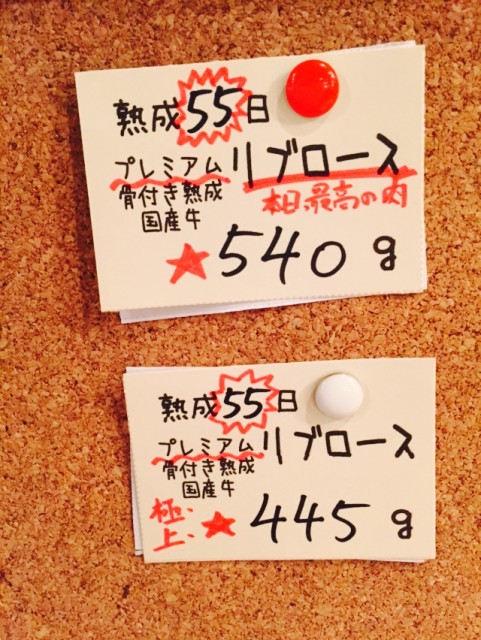 熟成55日
プレミアム リブロース
骨付き熟成
国産牛
本日最高の肉
★540g
熟成55日
プレミアム リブロース
骨付き熟成
国産牛
極上★445g